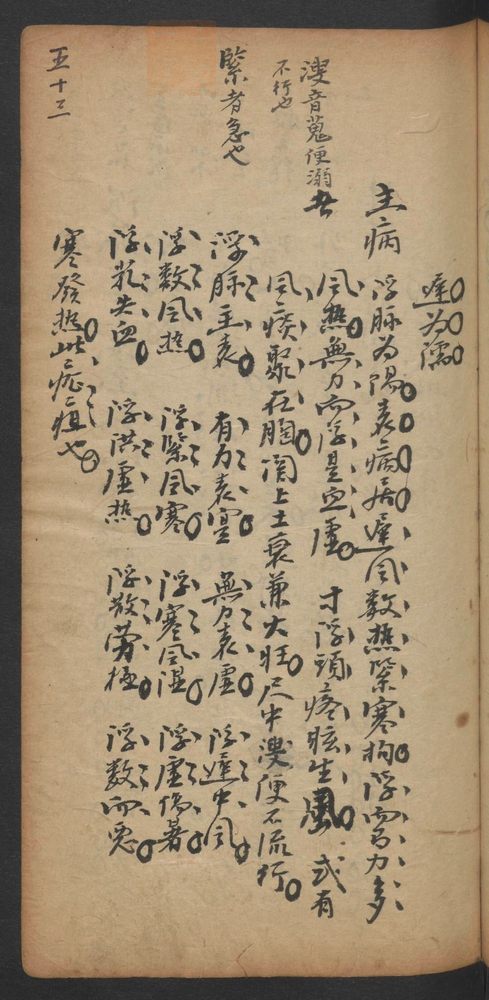 遲為濡
主病 浮脉為陽表病居遲風數熱緊寒拘浮而有力多
風熱無力而浮是血虛 寸浮頭疼眩生風 或有
風痰聚在胸関上土衰兼火旺尺中溲便不流行
浮脉主表 有力表实 無力表虛 浮遲中風
浮數風熱 浮緊風寒 浮寒風湿 浮虛傷暑
浮芤失血 浮洪虛熱 浮散劳極 浮數而恶
寒發热此症疽也
溲音蒐便溺
不行也
緊者急也
五十二